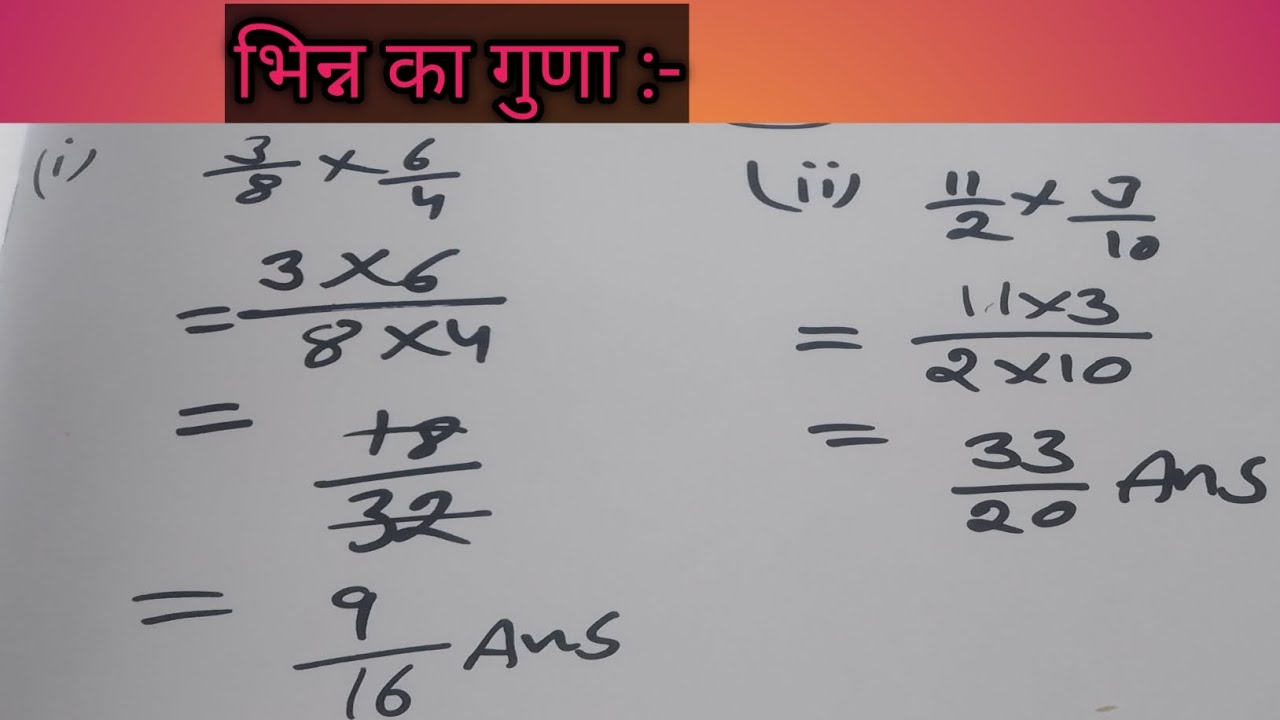 भिन्न का गुणा :-
(i) 3/8 × 6/4
= 3×6/8×4
= 18/32
= 9/16 Ans
(ii) 11/2 × 3/10
= 11×3/2×10
= 33/20 Ans